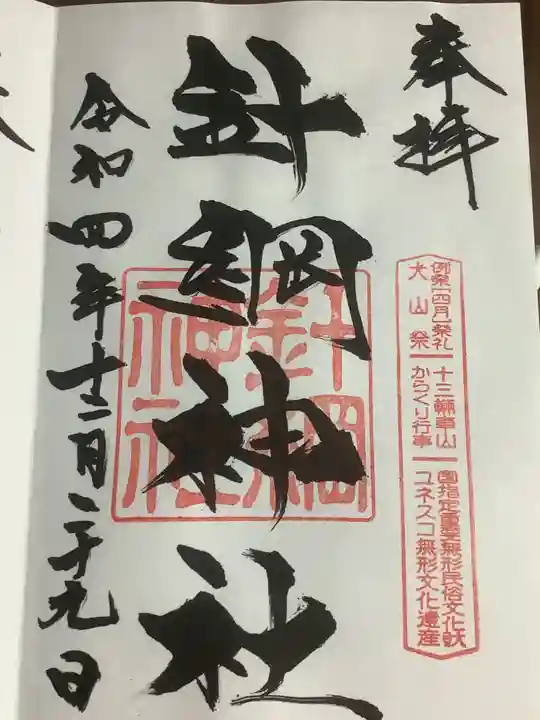 奉拝
例祭[四月]祭礼
犬山祭
十三輌車山
からくり行事
国指定重要無形民俗文化財
ユネスコ無形文化遺産
針綱神社
針綱
神社
令和四年十二月二十九日